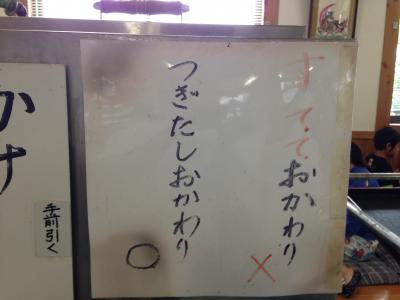 すてておかわり
×
つぎたしおかわり
○
手前引く
かけ